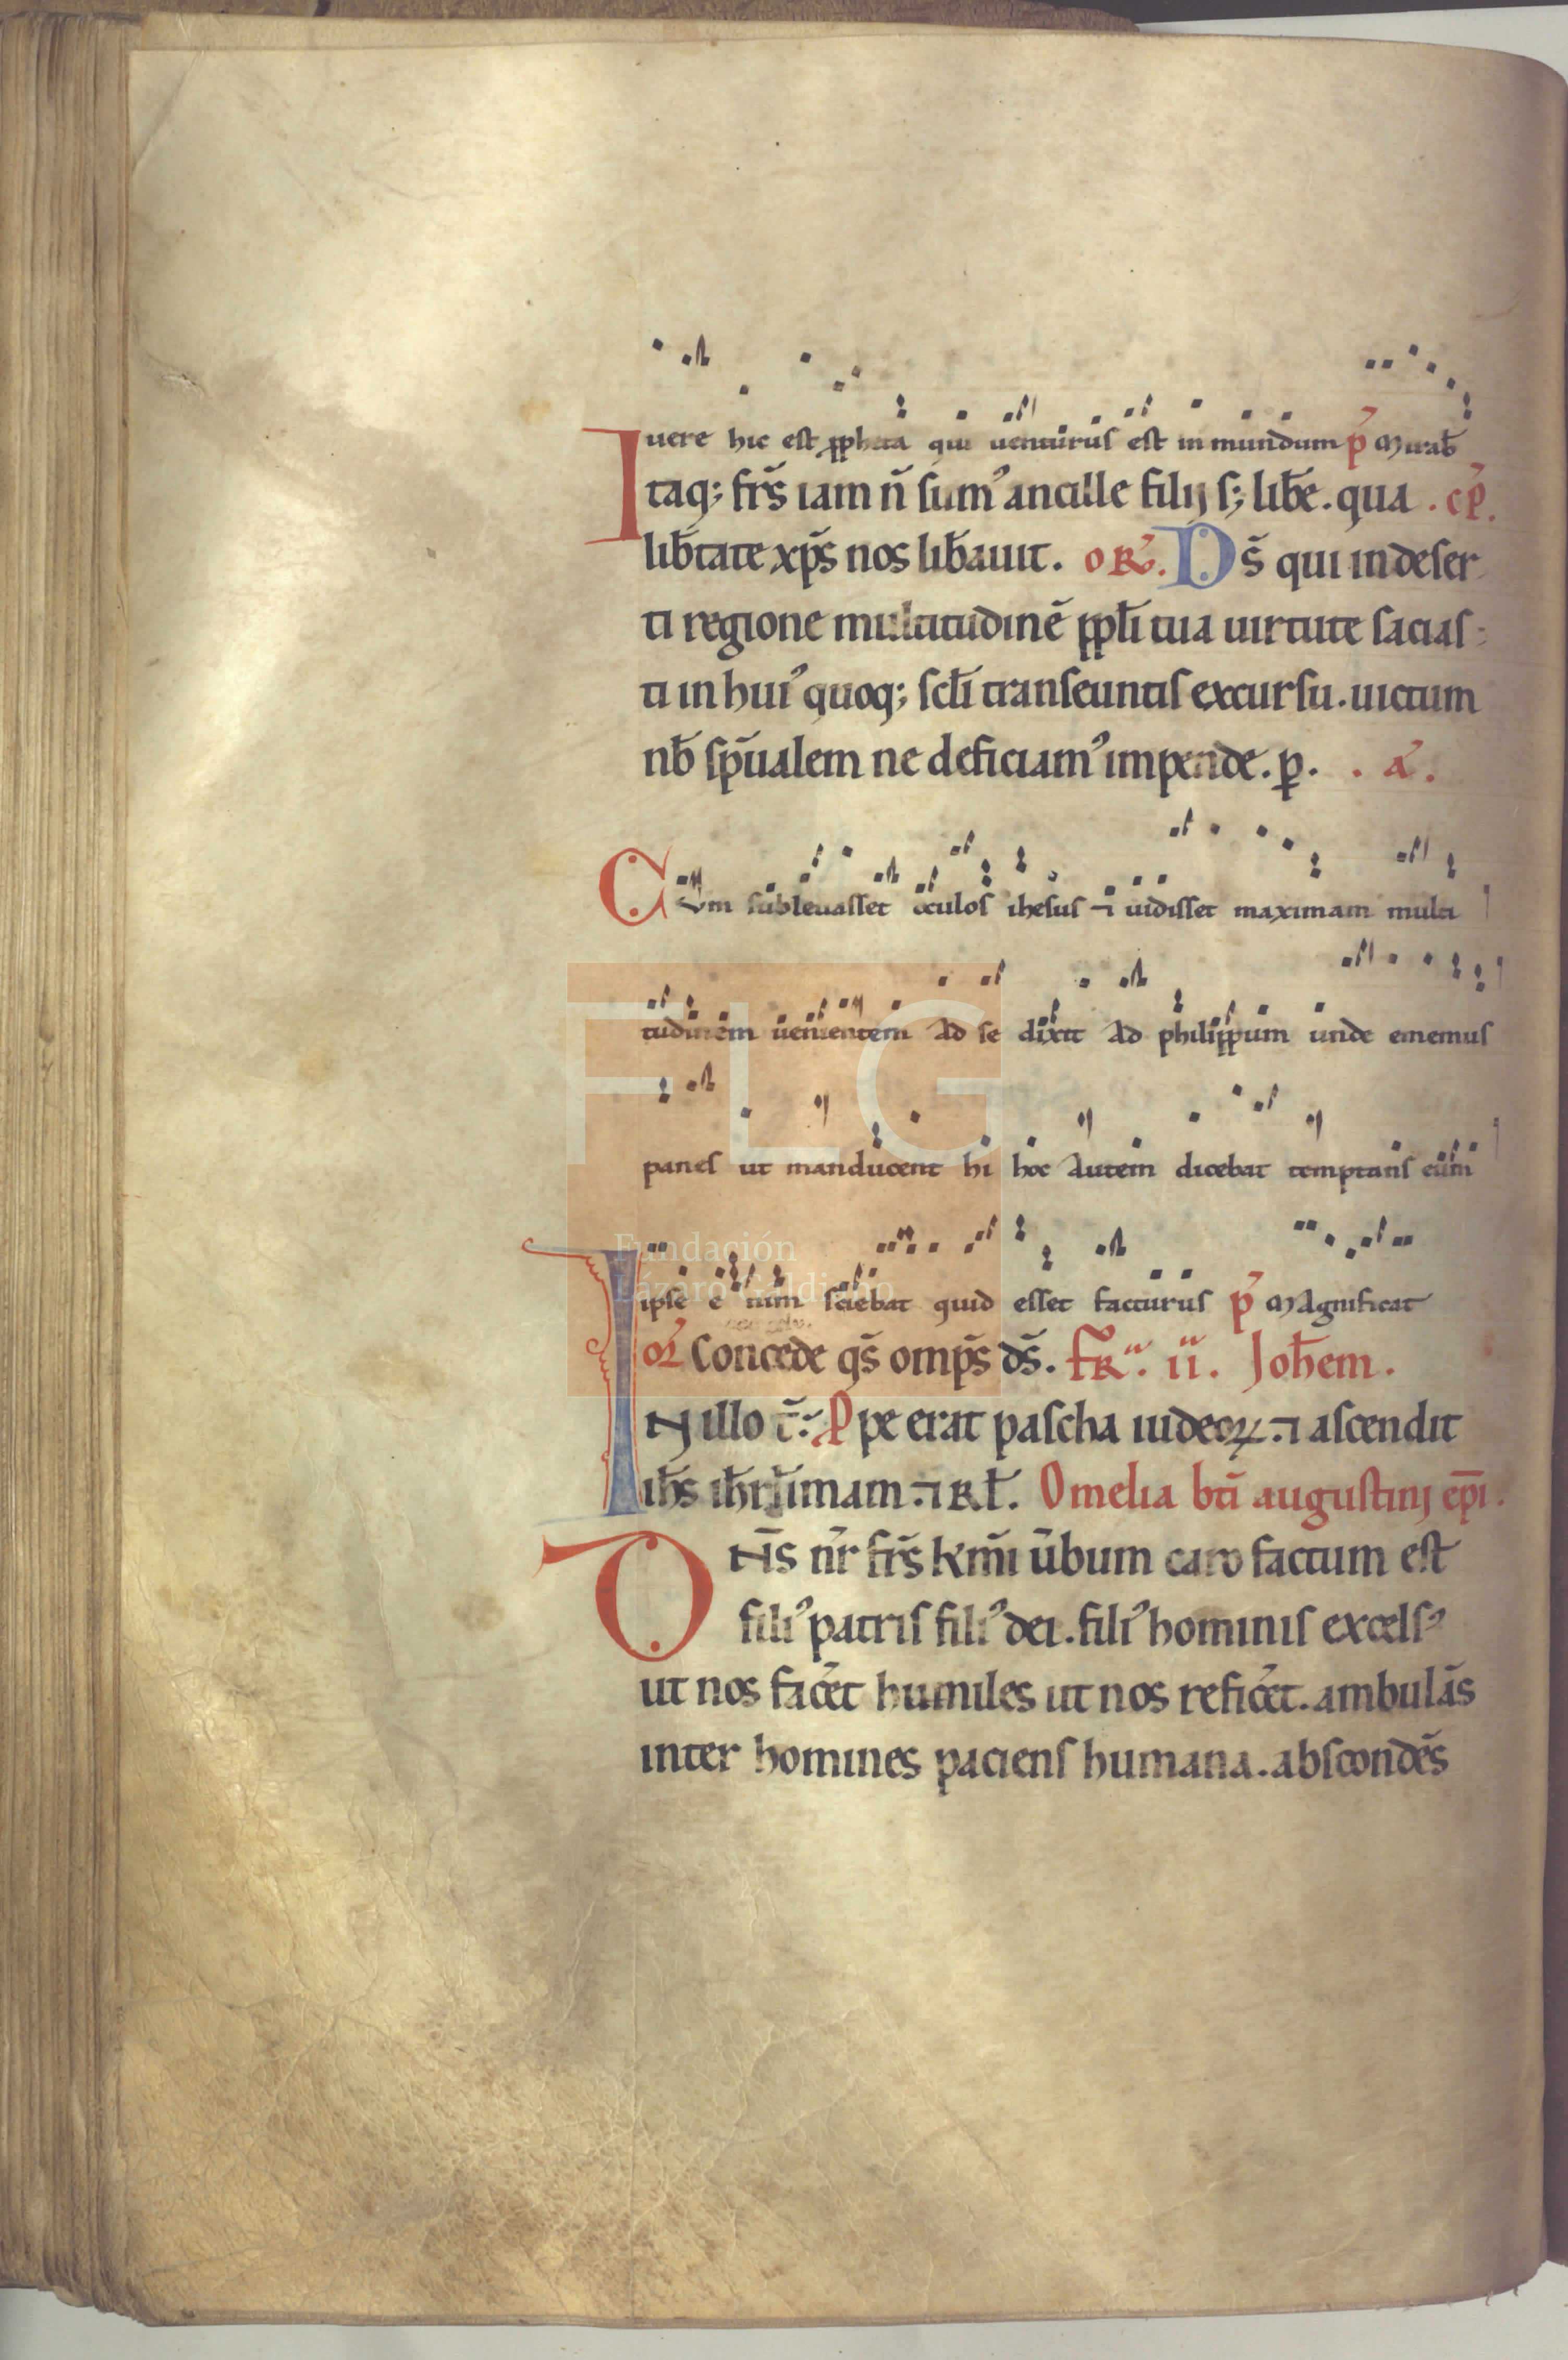 uere hic est ꝓpheta qui uenturus est in mundum p̉ Mirab̄
Itaq; fr̄s iam n̄ sum᾽ ancille filij s; lib̄e. qua . cp̄.
lib̄tate xp̄s nos lib̄auit. oR̄. Ds̄ qui in deser
ti regione multitudinē ppl̄i tua uirtute sacias
ti in hui᾽ quoq; scl̄i transeuntis excursu. uictum
nb̄ sp̄ualem ne deficiam᾽ impende. ꝑ. . a᾽.
Cum subleuasset oculos ihesus ⁊ uidisset maximam multi
tudinem uenientem ad se dixit ad philippum unde ememus
panes ut manducent hi hoc autem dicebat temptans eum
ipse enim sciebat quid esset facturus p̉ Magnificat
oꝝ Concede qs̄ omp̄s ds̄. fR̄ᵃ. ii. Joh̄em.
IN illo t̄. Ꝓpe erat pascha iudeoꝝ. ⁊ ascendit
ih̄s ih̄rl̄imam. ⁊ Rł. Omelia bt̄i augustinj ep̄i.
DN̄s nr̄ fr̄s km̄i ūbum caro factum est
fili᾽ patris fili᾽ dei. fili᾽ hominis excels᾽
ut nos facēt humiles ut nos reficēt. ambulās
inter homines paciens humana. abscondēs
FLG
Fundación
Lázaro Galdiano